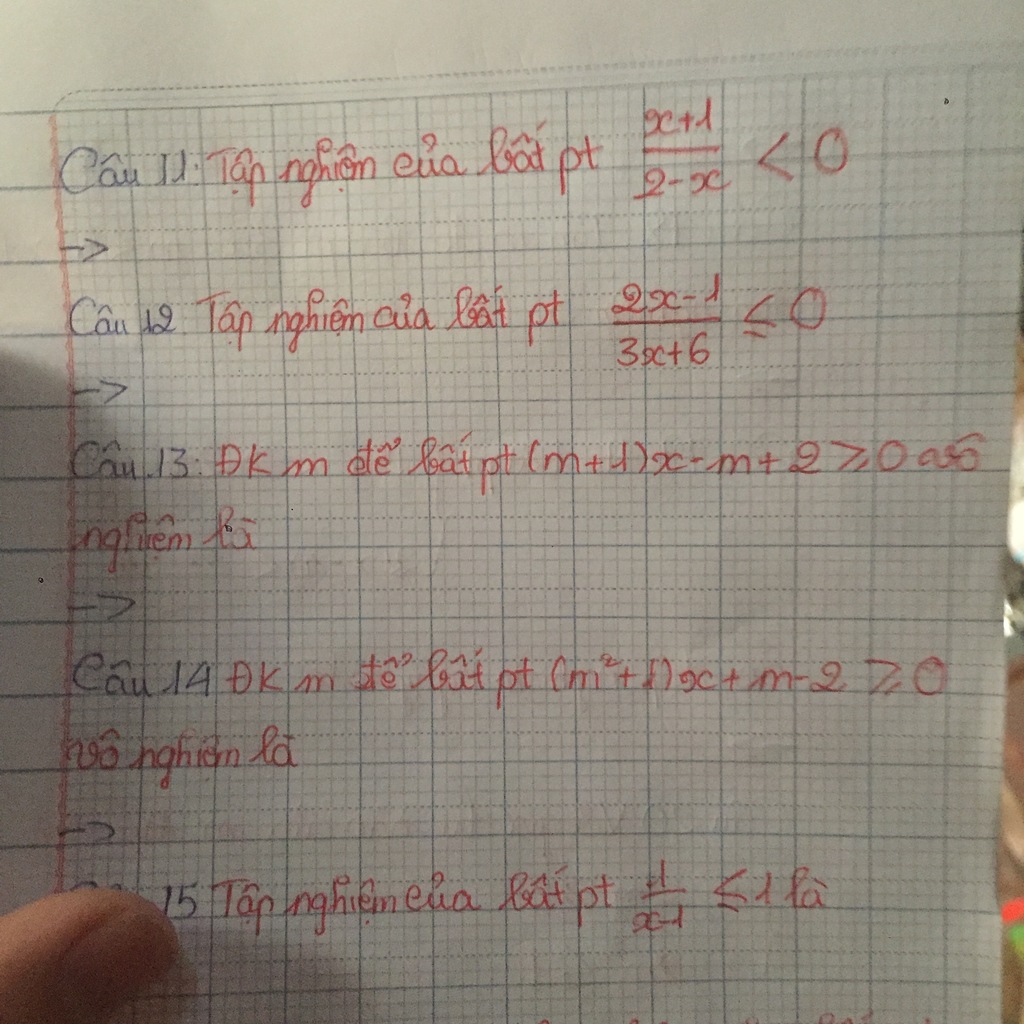 Câu 11: Tập nghiệm của bất pt x+1/2-x < 0
->
Câu 12 Tập nghiệm của bất pt 2x-1/3x+6 ≤ 0
->
Câu 13: ĐK m để bất pt (m+1)x-m+2 ≥ 0 vô
nghiệm là
->
Câu 14 ĐK m để bất pt (m²+1)x+m-2 ≥ 0
vô nghiệm là
->
15 Tập nghiệm của bất pt 1/x-1 ≤ 1 là